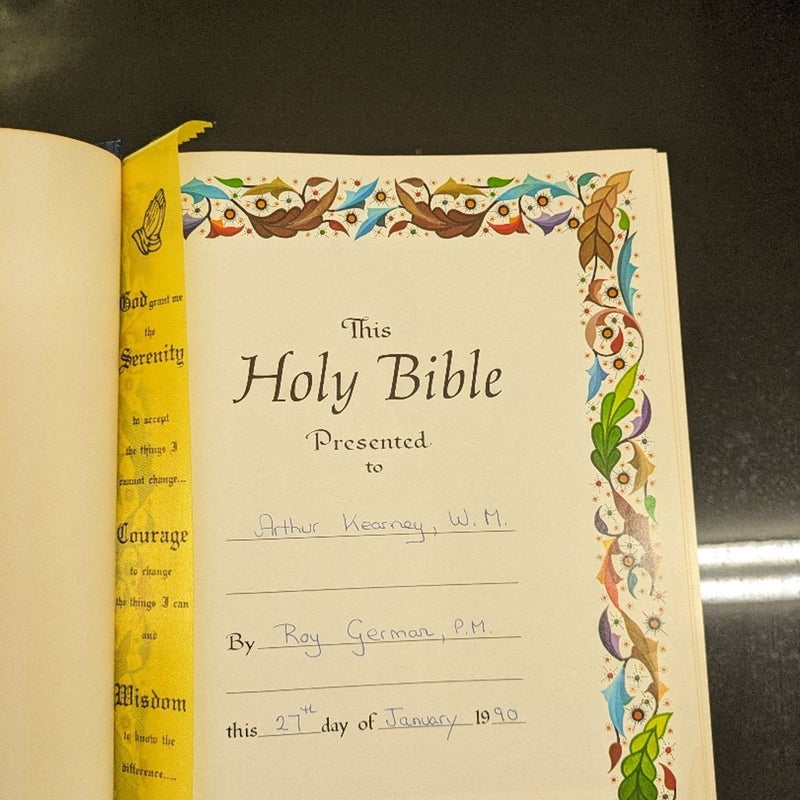 God grant me
the
Serenity
to accept
the things I
cannot change...
Courage
to change
the things I can
and
Wisdom
to know the
difference....
This
Holy Bible
Presented
to
Arthur Kearney, W. M.
By Roy German, P.M.
this 27th day of January 1990